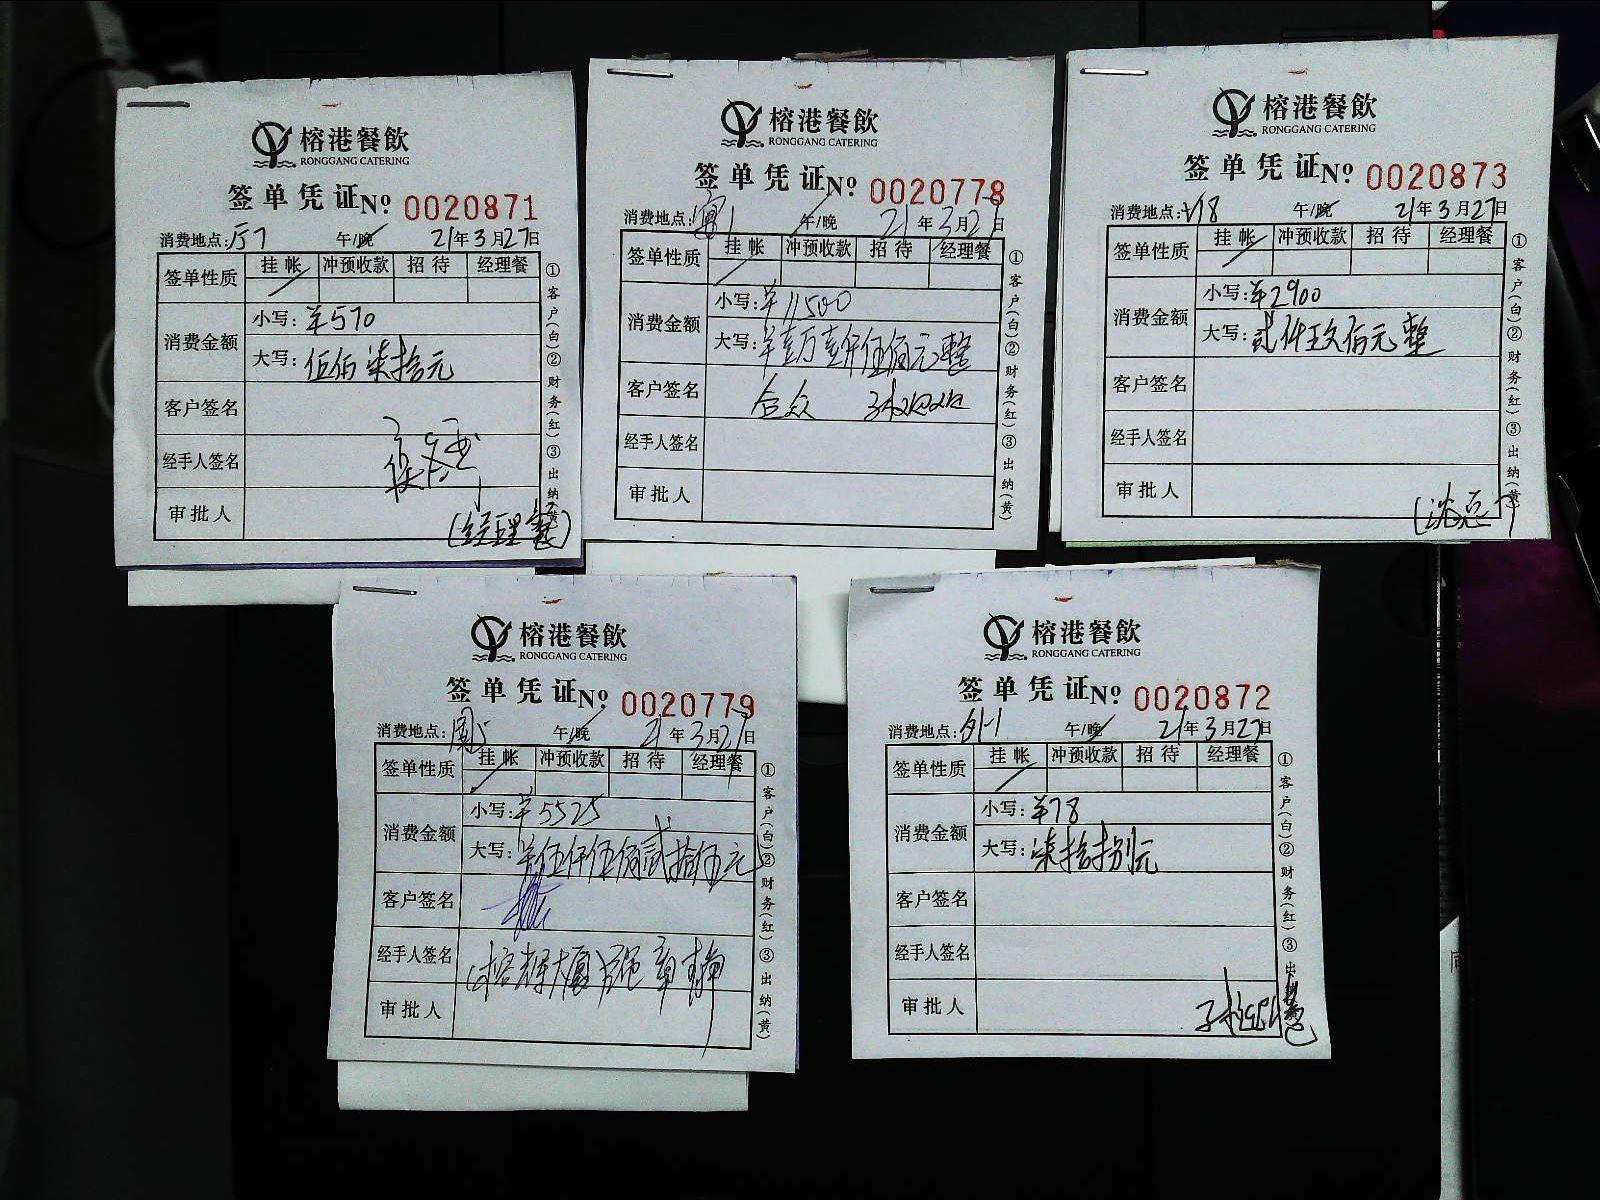 榕港餐飲
RONGGANG CATERING
签单凭证 No 0020871
消费地点: 厅7 午/晚 21年3月27日
签单性质 挂帐 冲预收款 招待 经理餐
消费金额 小写: ¥570
大写: 伍佰柒拾元
客户签名
经手人签名
审批人 (经理餐)
①客户(白)②财务(红)③出纳(黄)
榕港餐飲
RONGGANG CATERING
签单凭证 No 0020778
消费地点: 1 午/晚 21年3月27日
签单性质 挂帐 冲预收款 招待 经理餐
消费金额 小写: ¥11500
大写: ¥壹万壹仟伍佰元整
客户签名 合众
经手人签名
审批人
①客户(白)②财务(红)③出纳(黄)
榕港餐飲
RONGGANG CATERING
签单凭证 No 0020873
消费地点: V18 午/晚 21年3月27日
签单性质 挂帐 冲预收款 招待 经理餐
消费金额 小写: ¥2900
大写: 贰仟玖佰元整
客户签名
经手人签名
审批人
①客户(白)②财务(红)③出纳(黄)
榕港餐飲
RONGGANG CATERING
签单凭证 No 0020779
消费地点: 午/晚 21年3月27日
签单性质 挂帐 冲预收款 招待 经理餐
消费金额 小写: ¥5525
大写: ¥伍仟伍佰贰拾伍元
客户签名
经手人签名 (榕辉大厦)
审批人
①客户(白)②财务(红)③出纳(黄)
榕港餐飲
RONGGANG CATERING
签单凭证 No 0020872
消费地点: 外-1 午/晚 21年3月27日
签单性质 挂帐 冲预收款 招待 经理餐
消费金额 小写: ¥78
大写: 柒拾捌元
客户签名
经手人签名
审批人
①客户(白)②财务(红)③出纳(黄)